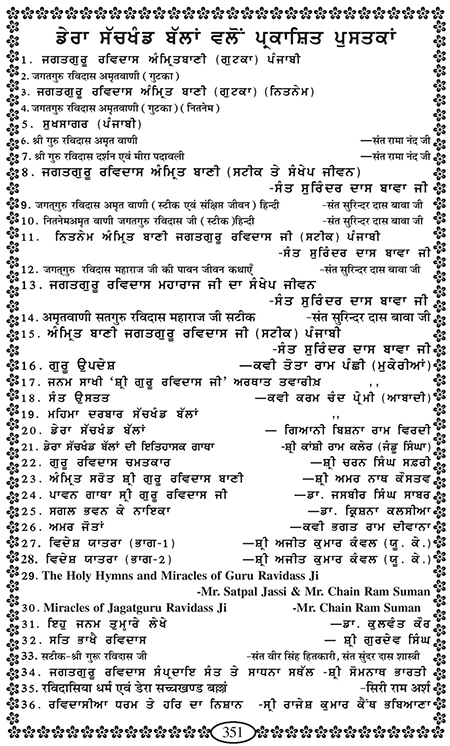 ਡੇਰਾ ਸੱਚਖੰਡ ਬੱਲਾਂ ਵਲੋਂ ਪ੍ਰਕਾਸ਼ਿਤ ਪੁਸਤਕਾਂ
1. ਜਗਤਗੁਰੂ ਰਵਿਦਾਸ ਅੰਮ੍ਰਿਤਬਾਣੀ (ਗੁਟਕਾ) ਪੰਜਾਬੀ
2. जगतगुरु रविदास अमृतवाणी (गुटका)
3. ਜਗਤਗੁਰੂ ਰਵਿਦਾਸ ਅੰਮ੍ਰਿਤ ਬਾਣੀ (ਗੁਟਕਾ) (ਨਿਤਨੇਮ)
4. जगतगुरु रविदास अमृतवाणी (गुटका) (नितनेम)
5. ਸੁਖਸਾਗਰ (ਪੰਜਾਬੀ)
6. श्री गुरु रविदास अमृत वाणी —संत रामा नंद जी
7. श्री गुरु रविदास दर्शन एवं मीरा पदावली —संत रामा नंद जी
8. ਜਗਤਗੁਰੂ ਰਵਿਦਾਸ ਅੰਮ੍ਰਿਤ ਬਾਣੀ (ਸਟੀਕ ਤੇ ਸੰਖੇਪ ਜੀਵਨ)
-ਸੰਤ ਸੁਰਿੰਦਰ ਦਾਸ ਬਾਵਾ ਜੀ
9. जगत्गुरु रविदास अमृत वाणी (स्टीक एवं संक्षिप्त जीवन) हिन्दी -संत सुरिन्दर दास बावा जी
10. नितनेमअमृत वाणी जगतगुरु रविदास जी (स्टीक) हिन्दी -संत सुरिन्दर दास बावा जी
11. ਨਿਤਨੇਮ ਅੰਮ੍ਰਿਤ ਬਾਣੀ ਜਗਤਗੁਰੂ ਰਵਿਦਾਸ ਜੀ (ਸਟੀਕ) ਪੰਜਾਬੀ
-ਸੰਤ ਸੁਰਿੰਦਰ ਦਾਸ ਬਾਵਾ ਜੀ
12. जगत्गुरु रविदास महाराज जी की पावन जीवन कथाएँ -संत सुरिन्दर दास बावा जी
13. ਜਗਤਗੁਰੂ ਰਵਿਦਾਸ ਮਹਾਰਾਜ ਜੀ ਦਾ ਸੰਖੇਪ ਜੀਵਨ
-ਸੰਤ ਸੁਰਿੰਦਰ ਦਾਸ ਬਾਵਾ ਜੀ
14. अमृतवाणी सतगुरु रविदास महाराज जी सटीक -संत सुरिन्दर दास बावा जी
15. ਅੰਮ੍ਰਿਤ ਬਾਣੀ ਜਗਤਗੁਰੂ ਰਵਿਦਾਸ ਜੀ (ਸਟੀਕ) ਪੰਜਾਬੀ
-ਸੰਤ ਸੁਰਿੰਦਰ ਦਾਸ ਬਾਵਾ ਜੀ
16. ਗੁਰੂ ਉਪਦੇਸ਼ —ਕਵੀ ਤੋਤਾ ਰਾਮ ਪੰਛੀ (ਮੁਕੇਰੀਆਂ)
17. ਜਨਮ ਸਾਖੀ 'ਸ਼੍ਰੀ ਗੁਰੂ ਰਵਿਦਾਸ ਜੀ' ਅਰਥਾਤ ਤਵਾਰੀਖ਼ ,,
18. ਸੰਤ ਉਸਤਤ —ਕਵੀ ਕਰਮ ਚੰਦ ਪ੍ਰੇਮੀ (ਆਬਾਦੀ)
19. ਮਹਿਮਾ ਦਰਬਾਰ ਸੱਚਖੰਡ ਬੱਲਾਂ ,,
20. ਡੇਰਾ ਸੱਚਖੰਡ ਬੱਲਾਂ — ਗਿਆਨੀ ਬਿਸ਼ਨਾ ਰਾਮ ਵਿਰਦੀ
21. ਡੇਰਾ ਸੱਚਖੰਡ ਬੱਲਾਂ ਦੀ ਇਤਿਹਾਸਕ ਗਾਥਾ -ਸ਼੍ਰੀ ਕਾਂਸ਼ੀ ਰਾਮ ਕਲੇਰ (ਜੰਡੂ ਸਿੰਘਾ)
22. ਗੁਰੂ ਰਵਿਦਾਸ ਚਮਤਕਾਰ —ਸ਼੍ਰੀ ਚਰਨ ਸਿੰਘ ਸਫ਼ਰੀ
23. ਅੰਮ੍ਰਿਤ ਸਰੋਤ ਸ਼੍ਰੀ ਗੁਰੂ ਰਵਿਦਾਸ ਬਾਣੀ —ਸ਼੍ਰੀ ਅਮਰ ਨਾਥ ਕੌਸਤਵ
24. ਪਾਵਨ ਗਾਥਾ ਸ੍ਰੀ ਗੁਰੂ ਰਵਿਦਾਸ ਜੀ —ਡਾ. ਜਸਬੀਰ ਸਿੰਘ ਸਾਬਰ
25. ਸਗਲ ਭਵਨ ਕੇ ਨਾਇਕਾ —ਡਾ. ਕ੍ਰਿਸ਼ਨਾ ਕਲਸੀਆ
26. ਅਮਰ ਜੋਤਾਂ —ਕਵੀ ਭਗਤ ਰਾਮ ਦੀਵਾਨਾ
27. ਵਿਦੇਸ਼ ਯਾਤਰਾ (ਭਾਗ-1) —ਸ਼੍ਰੀ ਅਜੀਤ ਕੁਮਾਰ ਕੰਵਲ (ਯੂ. ਕੇ.)
28. ਵਿਦੇਸ਼ ਯਾਤਰਾ (ਭਾਗ-2) —ਸ਼੍ਰੀ ਅਜੀਤ ਕੁਮਾਰ ਕੰਵਲ (ਯੂ. ਕੇ.)
29. The Holy Hymns and Miracles of Guru Ravidass Ji
-Mr. Satpal Jassi & Mr. Chain Ram Suman
30. Miracles of Jagatguru Ravidass Ji -Mr. Chain Ram Suman
31. ਇਹੁ ਜਨਮ ਤੁਮ੍ਹਾਰੇ ਲੇਖੇ —ਡਾ. ਕੁਲਵੰਤ ਕੌਰ
32. ਸਤਿ ਭਾਖੈ ਰਵਿਦਾਸ — ਸ਼੍ਰੀ ਗੁਰਦੇਵ ਸਿੰਘ
33. सटीक-श्री गुरू रविदास जी -संत वीर सिंह हितकारी, संत सुंदर दास शास्त्री
34. ਜਗਤਗੁਰੂ ਰਵਿਦਾਸ ਸੰਪ੍ਰਦਾਇ ਸੰਤ ਤੇ ਸਾਧਨਾ ਸਥੱਲ -ਸ਼੍ਰੀ ਸੋਮਨਾਥ ਭਾਰਤੀ
35. रविदासिया धर्म एवं डेरा सच्चखण्ड बल्लां -सिरी राम अर्श
36. ਰਵਿਦਾਸੀਆ ਧਰਮ ਤੇ ਹਰਿ ਦਾ ਨਿਸ਼ਾਨ -ਸ੍ਰੀ ਰਾਜੇਸ਼ ਕੁਮਾਰ ਕੈਂਥ ਭਬਿਆਣਾ
351